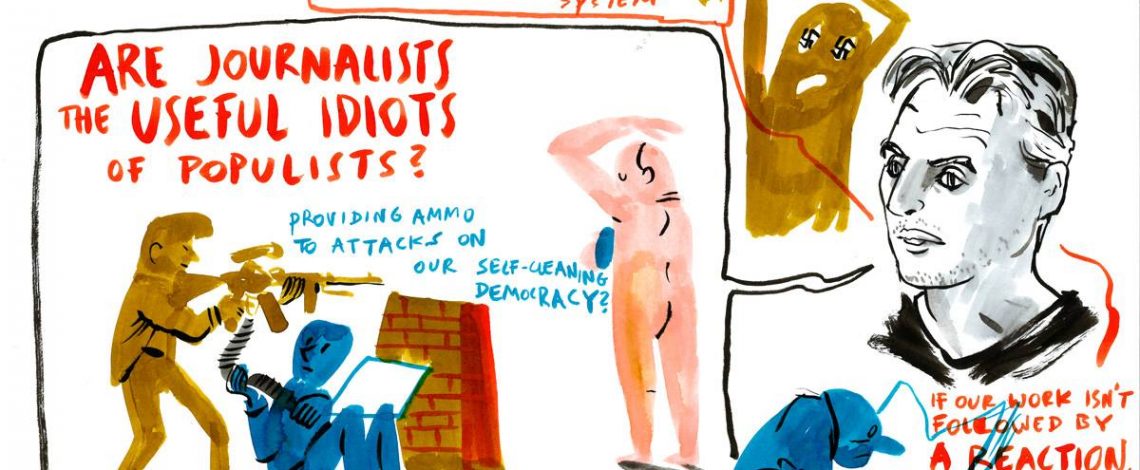 SYSTEM
ARE JOURNALISTS
THE USEFUL IDIOTS
OF POPULISTS?
PROVIDING AMMO
TO ATTACKS ON
OUR SELF-CLEANING
DEMOCRACY?
IF OUR WORK ISN'T
FOLLOWED BY
A REACTION